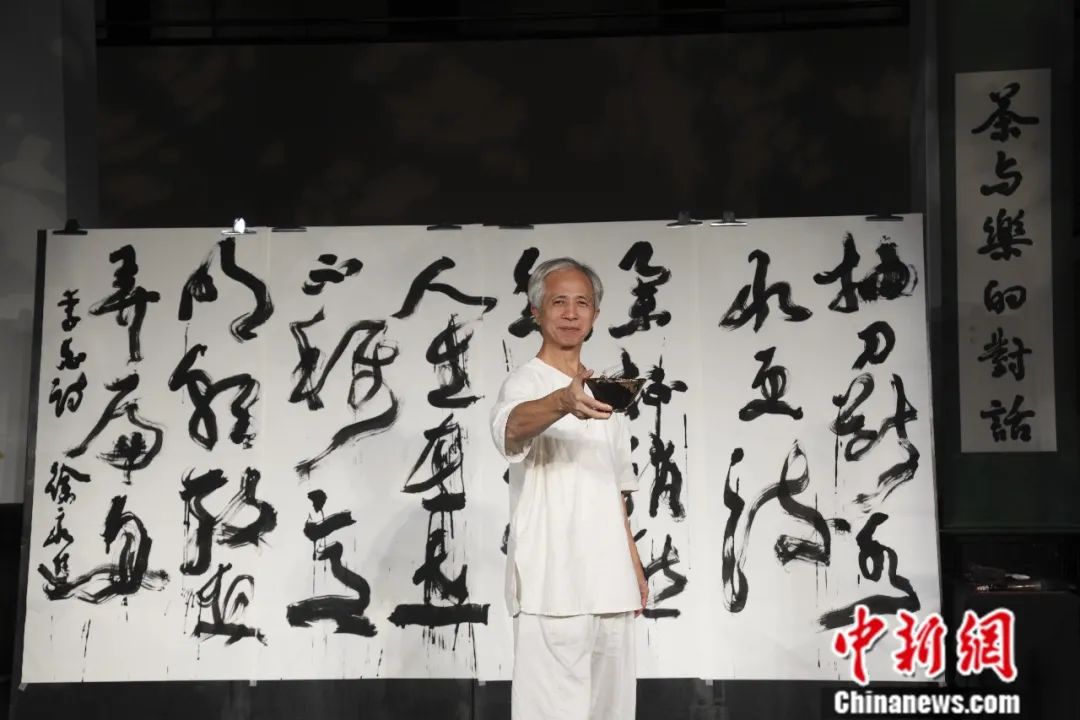 茶与樂的對話
抽刀斷水
水更流
舉杯消愁
人生在世
不稱意
明朝散髮
弄扁舟
李白詩
徐永進
中新网
Chinanews.com